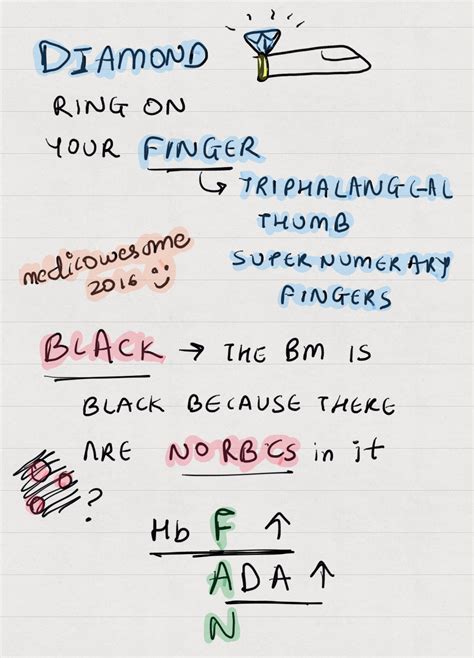 DIAMOND
RING ON
YOUR FINGER
↳ TRIPHALANGEAL
THUMB
SUPERNUMERARY
FINGERS
medicowesome
2016
BLACK → THE BM IS
BLACK BECAUSE THERE
ARE NO RBCS in it
?
Hb F ↑
ADA ↑
N